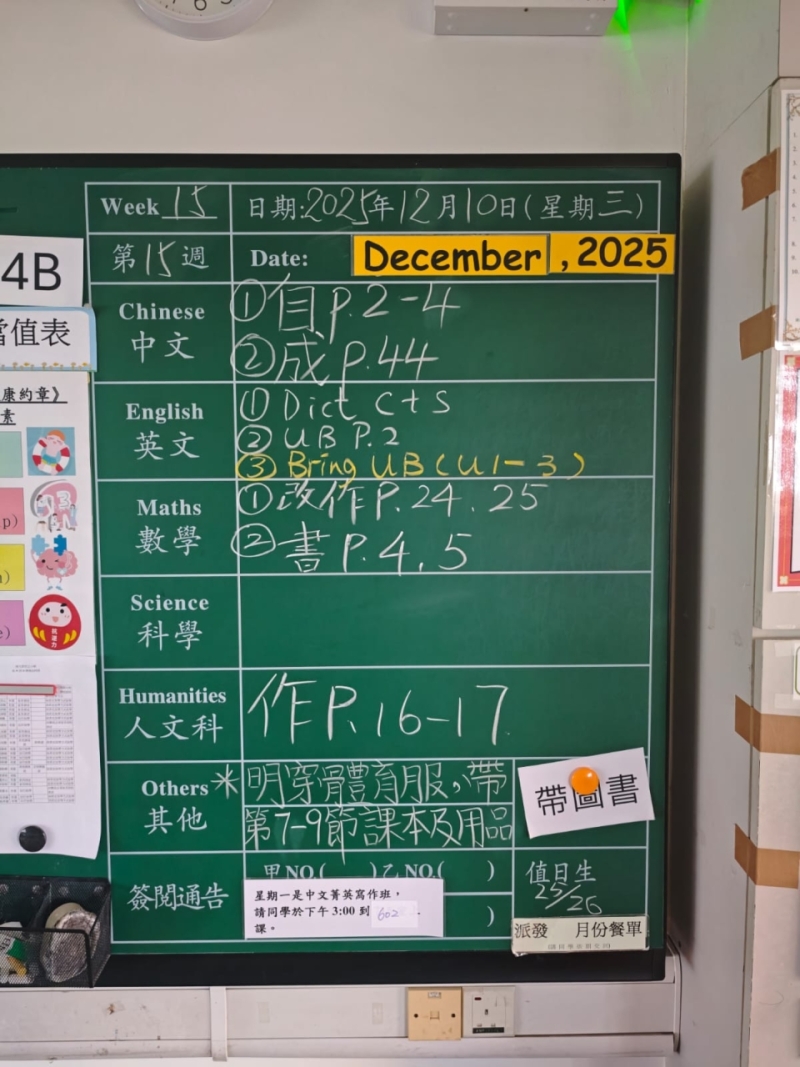 Week 15
日期:2025年12月10日(星期三)
第15週
Date: December , 2025
4B
當值表
康約章》
素
Chinese
中文
①自P.2-4
②成P.44
English
英文
① Dict C+S
② UB P.2
③ Bring UB (U1-3)
Maths
數學
①改作P.24.25
②書P.4.5
Science
科學
Humanities
人文科
作P.16-17
Others
其他
*明穿體育服,帶
第7-9節課本及用品
帶圖書
簽閱通告
甲NO.( )乙NO.( )
)
星期一是中文菁英寫作班,
請同學於下午 3:00 到 602
課。
值日生
25/26
派發 月份餐單